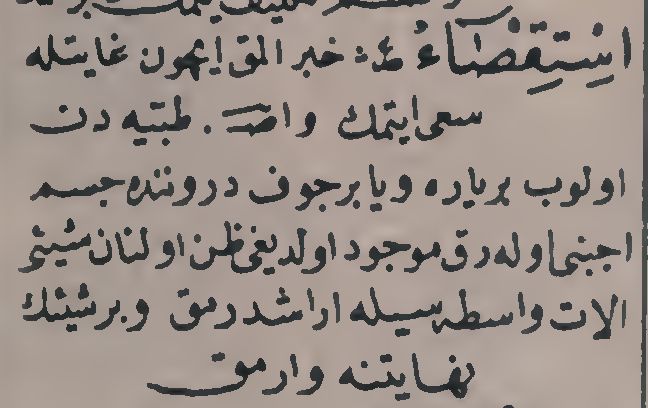 اِسْتِقْصَاءُ ع: خبر المق ايچون غايتله
سعى ايتمك واصـ. طبتيه دن
اولوب برياره ويا برجوف دروننده جسم
اجنبى اوله رق موجود اولديغى ظن اولنان شيئى
الات واسطه سيله اراشدرمق وبرشيئك
نهايتنه وارمق